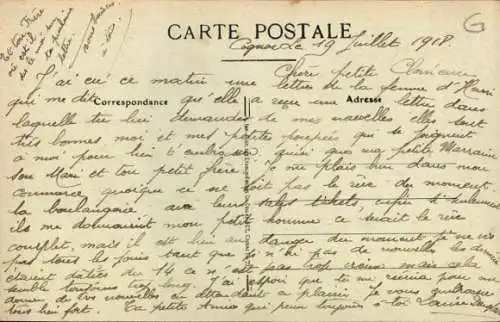 Et ton frère
où est il
dis le moi sur
ta prochaine
lettre.
CARTE POSTALE
Cognac Le 19 Juillet 1918.
Chère petite
J'ai eu ce matin une lettre de la femme d'Henri
qui me dit qu'elle a reçu une lettre dans
Correspondance
Adresse
laquelle tu lui demandes de mes nouvelles elles sont
très bonnes moi et mes petites poupées qui se joignent
à moi pour bien t'embrasser ainsi que ma petite Marraine
son Mari et ton petit frère. Je me plais bien dans mon
commerce quoique ce ne soit pas le rêve du moment.
la boulangerie avec leurs sales tickets, enfin si seulement
ils me donnaient mon petit homme ce serait le rêve
complet, mais il est bien au danger du moment je ne vis
pas tous les jours tant que je n'ai pas de nouvelles les dernières
étaient datées du 14 ce n'est pas trop vieux mais cela
semble toujours trop long. J'ai espoir que tu me
donner de tes nouvelles en attendant ce plaisir Je vous
tous bien fort. Ta petite Amie qui pense toujours à toi